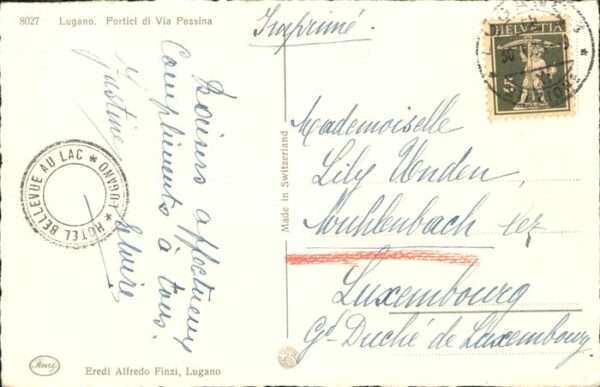 8027 Lugano. Portici di Via Pessina
Imprimé
HELVETIA
5
Made in Switzerland
Mademoiselle
Lily Wenden,
Muhlenbach lez
Luxembourg
Gd Duché de Luxembourg.
affectueux
Compliments à tous.
Justine
HOTEL BELLEVUE AU LAC * LUGANO *
Eredi Alfredo Finzi, Lugano